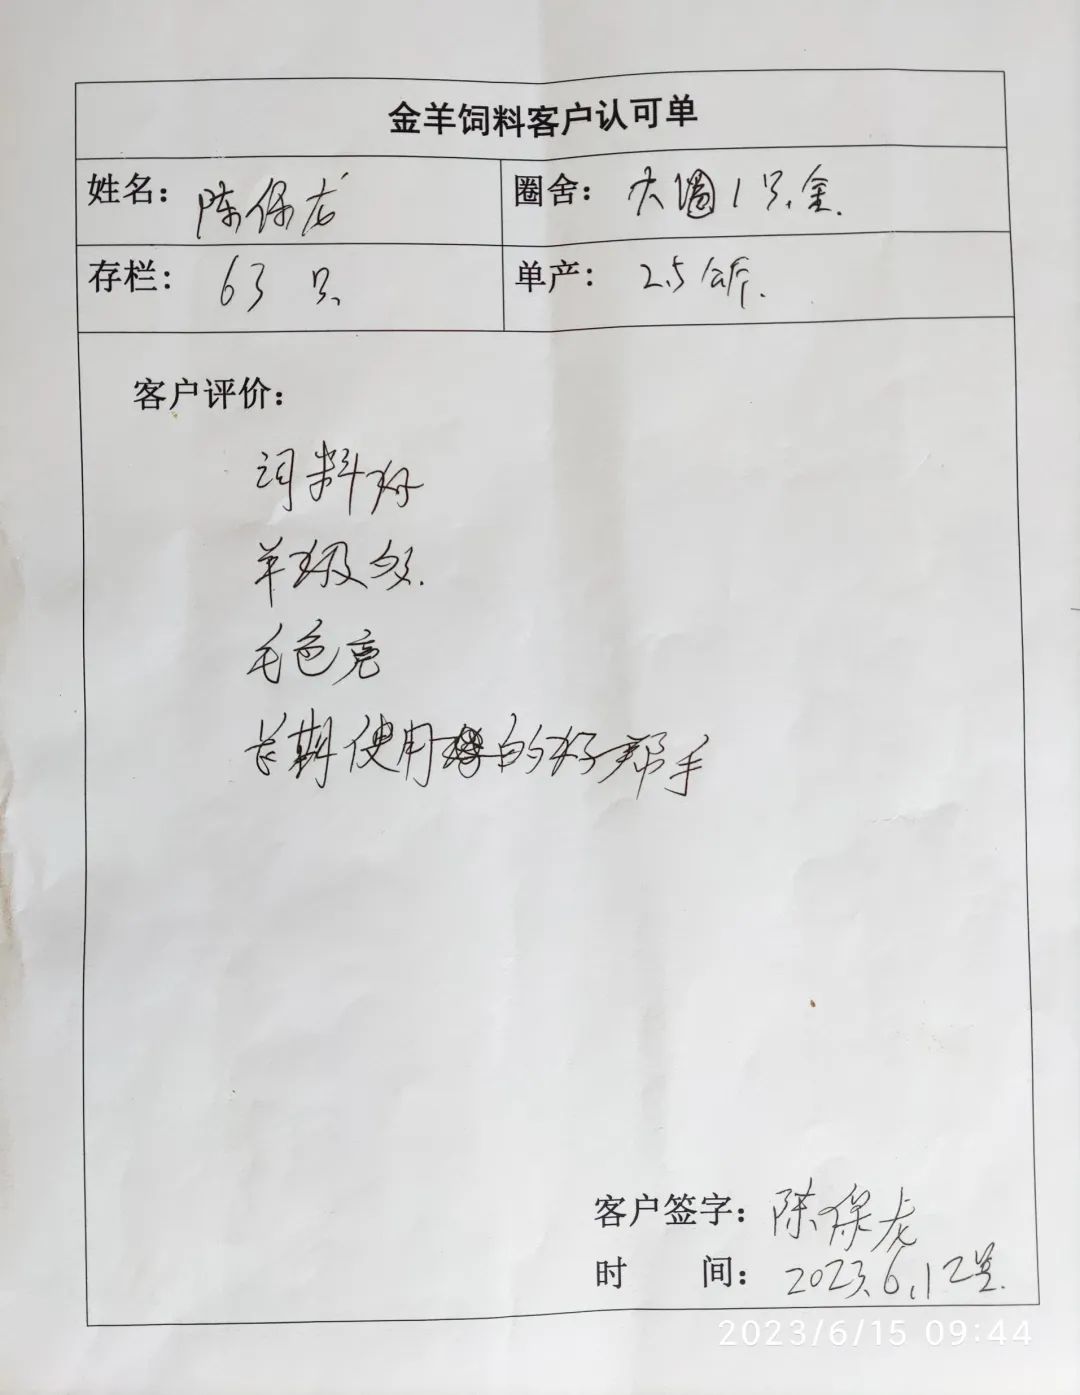 金羊饲料客户认可单
姓名： 陈保龙 圈舍： 大圈1只.金.
存栏： 63 只 单产： 2.5公斤.
客户评价：
饲料好
羊级多.
毛色亮
长期使用的好帮手
客户签字： 陈保龙
时 间： 2023.6.12号.
2023/6/15 09:44